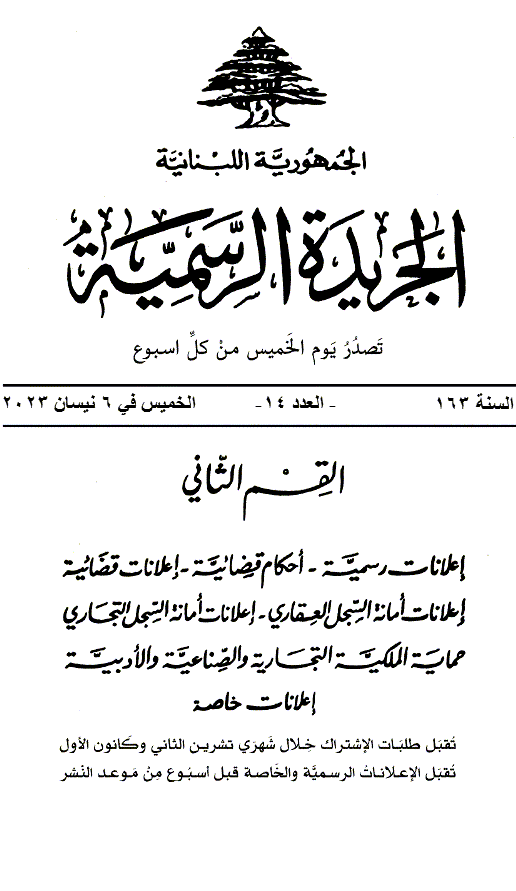 الجُمهُوريَّة اللبْنانيَّة
الجَريدَة الرسَّمِيَّة
تَصدُرُ يَوم الخَميس منْ كلِّ اسبوع
السنة ١٦٣ - العدد ١٤- الخميس في ٦ نيسان ٢٠٢٣
القِسْم الثّاني
إعلانات رسميَّة - أحكام قضائيَّة - إعلانات قضائية
إعلانات أمانة السِّجل العِقاري - إعلانات أمانة السِّجل التجاري
حماية الملكيَّة التجارية والصِّناعيَّة والأدبيَّة
إعلانات خاصة
تُقبَل طلبَات الإشتراك خِلال شَهرَي تشرين الثاني وكَانون الأول
تُقبَل الإعلانات الرسميَّة والخَاصة قبل أسبُوع مِنْ مَوعد النَشر